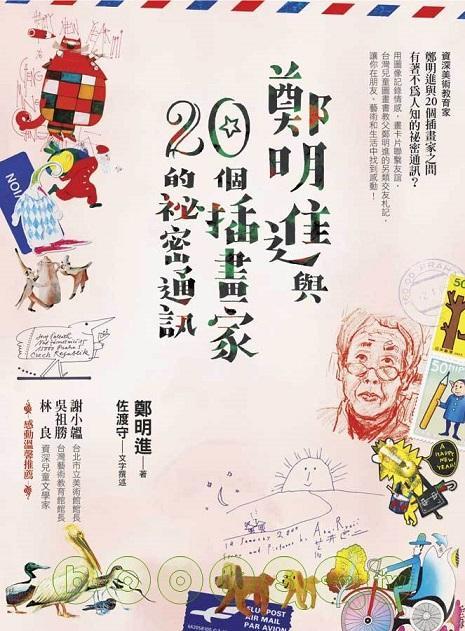 資深美術教育家
鄭明進與20個插畫家之間
有著不為人知的祕密通訊?
用圖像記錄情感,畫卡片聯繫友誼,
台灣兒童圖畫書教父鄭明進的另類交友札記,
讓你在朋友、藝術和生活中找到感動!
鄭明進與
20個插畫家
的祕密通訊
鄭明進──著
佐渡守──文字撰述
謝小韞 台北市立美術館館長
吳祖勝 台灣藝術教育館館長
林 良 資深兒童文學家
感動溫馨推薦
Czech Republik
50
A HAPPY
NEW
YEAR!
AIR MAIL
PAR AVION